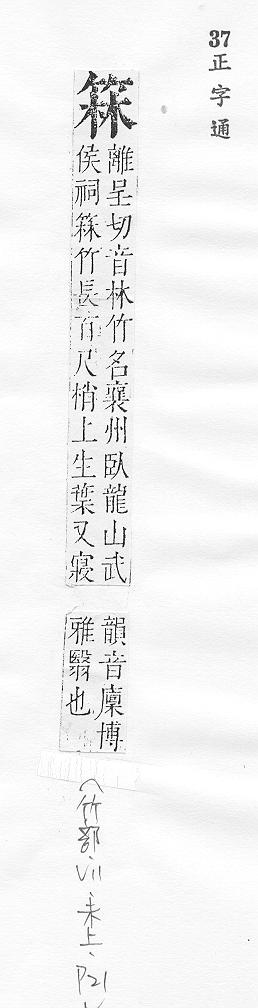 37
正字通
箖
離呈切音林竹名襄州臥龍山武
侯祠箖竹長百尺梢上生葉又寢
韻音廩博
雅翳也
(竹部、VII、未上、P21